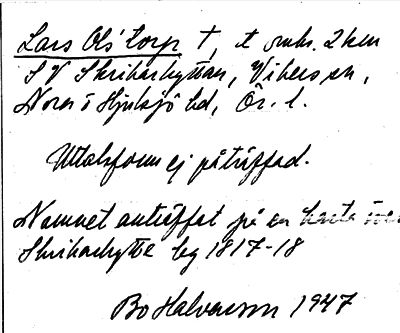 Lars Ols' torp †, t omkr. 2 km
SV Skrikarhyttan, Vikers sn,
Nora o Hjulsjö hd, Ör. l.
Uttalsform ej påträffad.
Namnet anträffat på en karta över
Skrikarhytte bg 1817-18
Bo Halvarson 1947